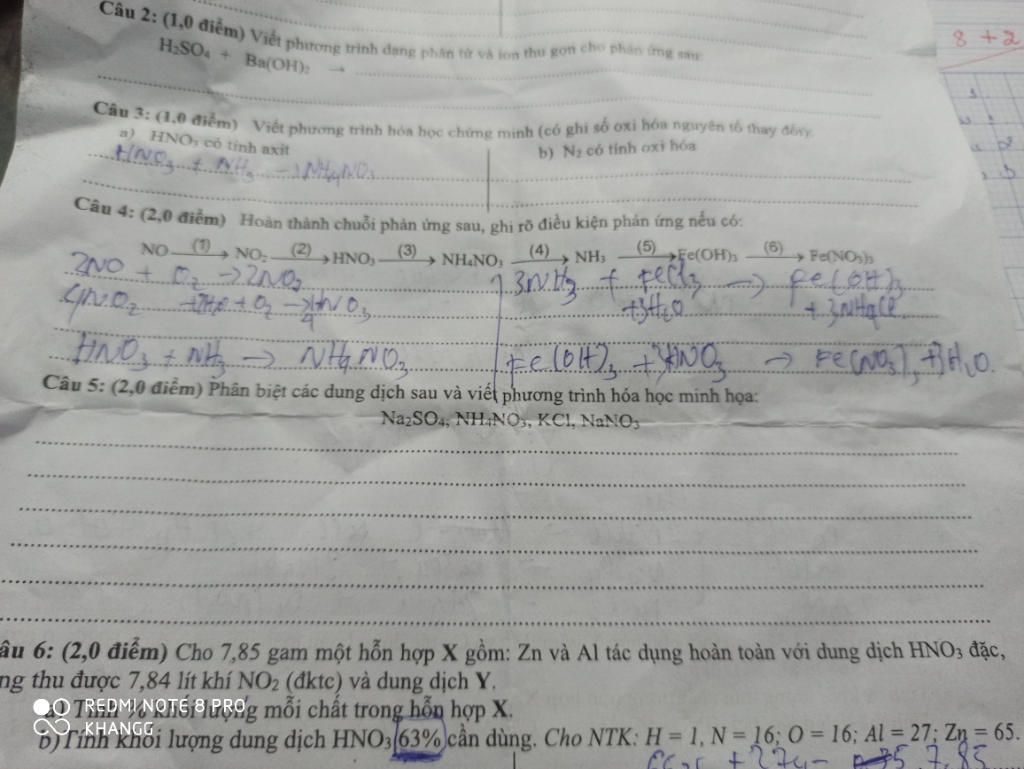 Câu 2: (1,0 điểm) Viết phương trình dạng phân tử và ion thu gọn cho phản ứng sau:
H₂SO₄ + Ba(OH)₂ →
8 + 2
Câu 3: (1,0 điểm) Viết phương trình hóa học chứng minh (có ghi số oxi hóa nguyên tố thay đổi):
a) HNO₃ có tính axit
b) N₂ có tính oxi hóa
HNO₃ + NH₃ → NH₄NO₃
Câu 4: (2,0 điểm) Hoàn thành chuỗi phản ứng sau, ghi rõ điều kiện phản ứng nếu có:
NO (1)→ NO₂ (2)→ HNO₃ (3)→ NH₄NO₃ (4)→ NH₃ (5)→ Fe(OH)₃ (6)→ Fe(NO₃)₃
2NO + O₂ → 2NO₂
3NH₃ + FeCl₃ → Fe(OH)₃
+3H₂O + 3NH₄Cl
4NO₂ +2H₂O + O₂ → 4HNO₃
HNO₃ + NH₃ → NH₄NO₃
Fe(OH)₃ + 3HNO₃ → Fe(NO₃)₃ + 3H₂O.
Câu 5: (2,0 điểm) Phân biệt các dung dịch sau và viết phương trình hóa học minh họa:
Na₂SO₄, NH₄NO₃, KCl, NaNO₃
âu 6: (2,0 điểm) Cho 7,85 gam một hỗn hợp X gồm: Zn và Al tác dụng hoàn toàn với dung dịch HNO₃ đặc,
ng thu được 7,84 lít khí NO₂ (đktc) và dung dịch Y.
a) Tính % khối lượng mỗi chất trong hỗn hợp X.
b) Tính khối lượng dung dịch HNO₃ 63% cần dùng. Cho NTK: H = 1, N = 16; O = 16; Al = 27; Zn = 65.
REDMI NOTE 8 PRO
KHANGG
7,85